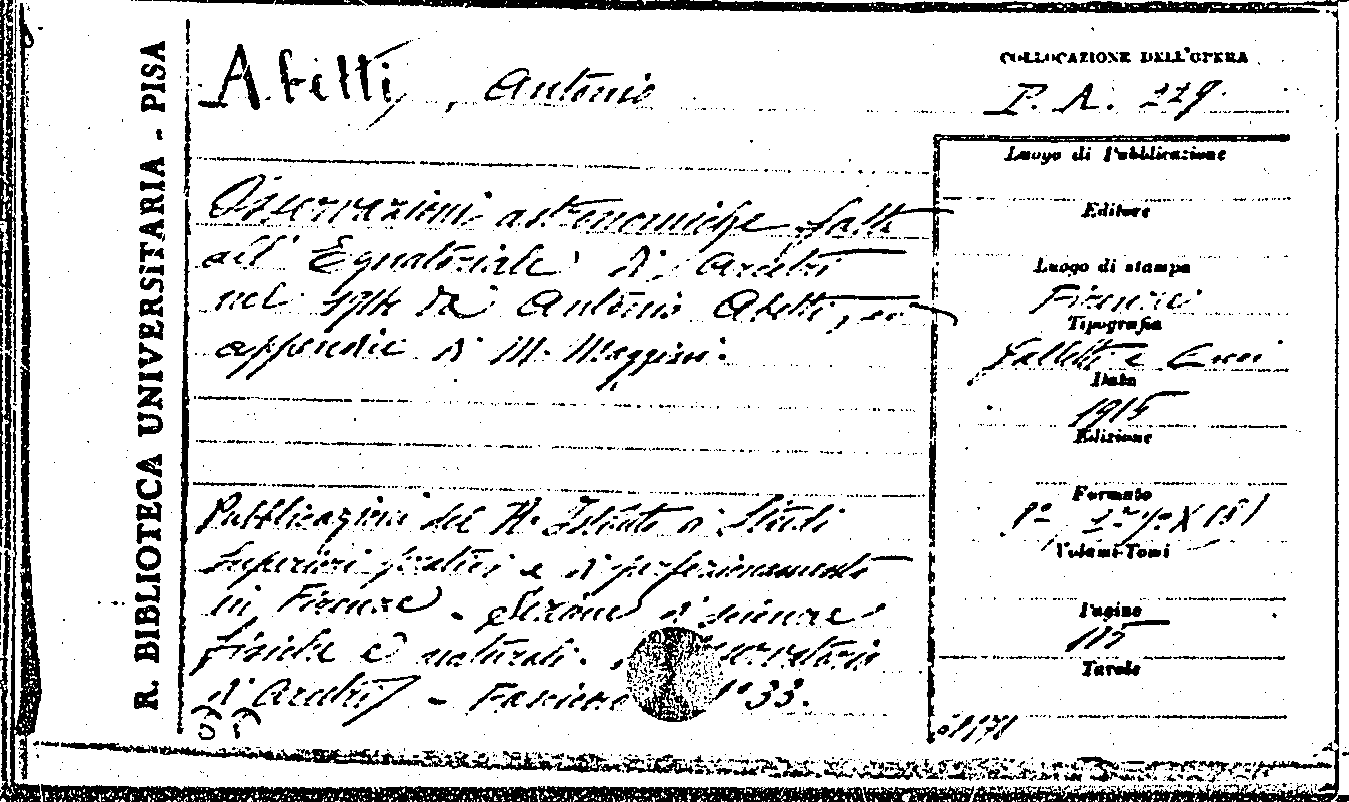 R. BIBLIOTECA UNIVERSITARIA - PISA
Abetti, Antonio
COLLOCAZIONE DELL'OPERA
P. A. 229.
Osservazioni astronomiche fatte
all' Equatoriale di Arcetri
nel 1914 da Antonio Abetti, con
appendice di M. Maggini.
Pubblicazioni del R. Istituto di Studi
Superiori pratici e di perfezionamento
in Firenze. - Sezione di scienze
fisiche e naturali. Osservatorio
di Arcetri - Fascicolo n° 33.
Luogo di Pubblicazione
Editore
Luogo di stampa
Firenze
Tipografia
Galletti e Cocci
Data
1915
Edizione
Formato
Volumi-Tomi
Pagine
115
Tavole